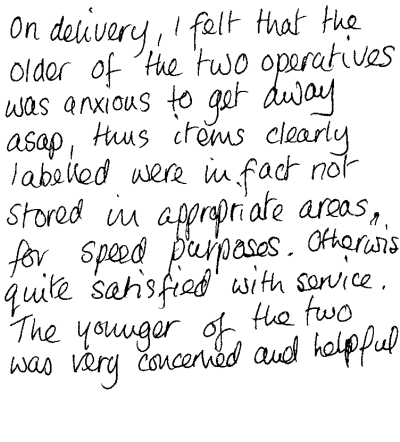 On delivery, I felt that the
older of the two operatives
was anxious to get away
asap, thus items clearly
labelled were in fact not
stored in appropriate areas,
for speed purposes. Otherwis
quite satisfied with service.
The younger of the two
was very concerned and helpful